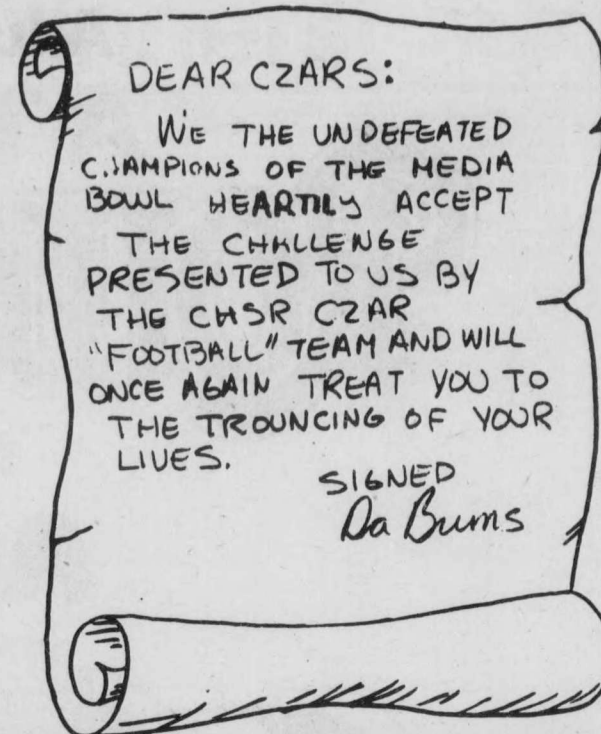 DEAR CZARS:
WE THE UNDEFEATED
CHAMPIONS OF THE MEDIA
BOWL HEARTILY ACCEPT
THE CHALLENGE
PRESENTED TO US BY
THE CHSR CZAR
"FOOTBALL" TEAM AND WILL
ONCE AGAIN TREAT YOU TO
THE TROUNCING OF YOUR
LIVES.
SIGNED
Da Bums